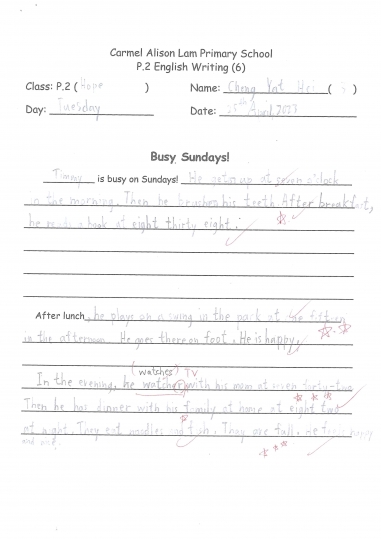 Carmel Alison Lam Primary School
P.2 English Writing (6)
Class: P.2 ( Hope ) Name: Cheng Yat Hei ( )
Day: Tuesday Date: 25th April 2023
Busy Sundays!
Timmy is busy on Sundays! He gets up at seven o'clock
in the morning. Then he brushes his teeth. After breakfast,
he reads a book at eight thirty eight.
After lunch, he plays on a swing in the park at fifteen
in the afternoon. He goes there on foot. He is happy.
(watches) TV
In the evening, he watches with his mom at seven forty-two
Then he has dinner with his family at home at eight two
at night. They eat noodles and fish. They are full. He feels happy
and